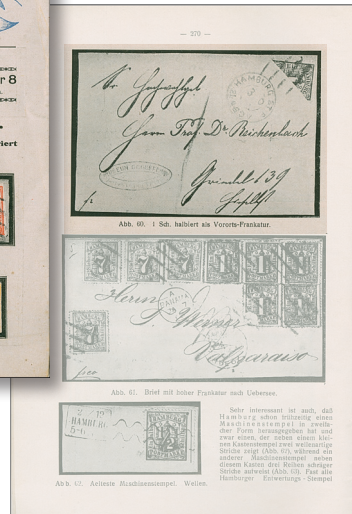 r 8
riert
— 370 —
HAMBURG
Sr. Hochwohlgeb.
Herrn Prof. Dr. Reichenbach
Grindel 139
Abb. 60. 1 Sch. halbiert als Vororts-Frankatur.
7 7 7 1 1 1
1 1
7
Herrn
Valparaiso
Abb. 61. Brief mit hoher Frankatur nach Uebersee.
HAMBURG
5-6
Abb. 62. Aelteste Maschinenstempel. Wellen.
Sehr interessant ist auch, daß
Hamburg schon frühzeitig einen
Maschinenstempel in zweifa-
cher Form herausgegeben hat und
zwar einen, der neben einem klei-
nen Kastenstempel zwei wellenartige
Striche zeigt (Abb. 62), während ein
anderer Maschinenstempel neben
diesem Kasten drei Reihen schräger
Striche aufweist (Abb. 63). Fast alle
Hamburger Entwertungs-Stempel